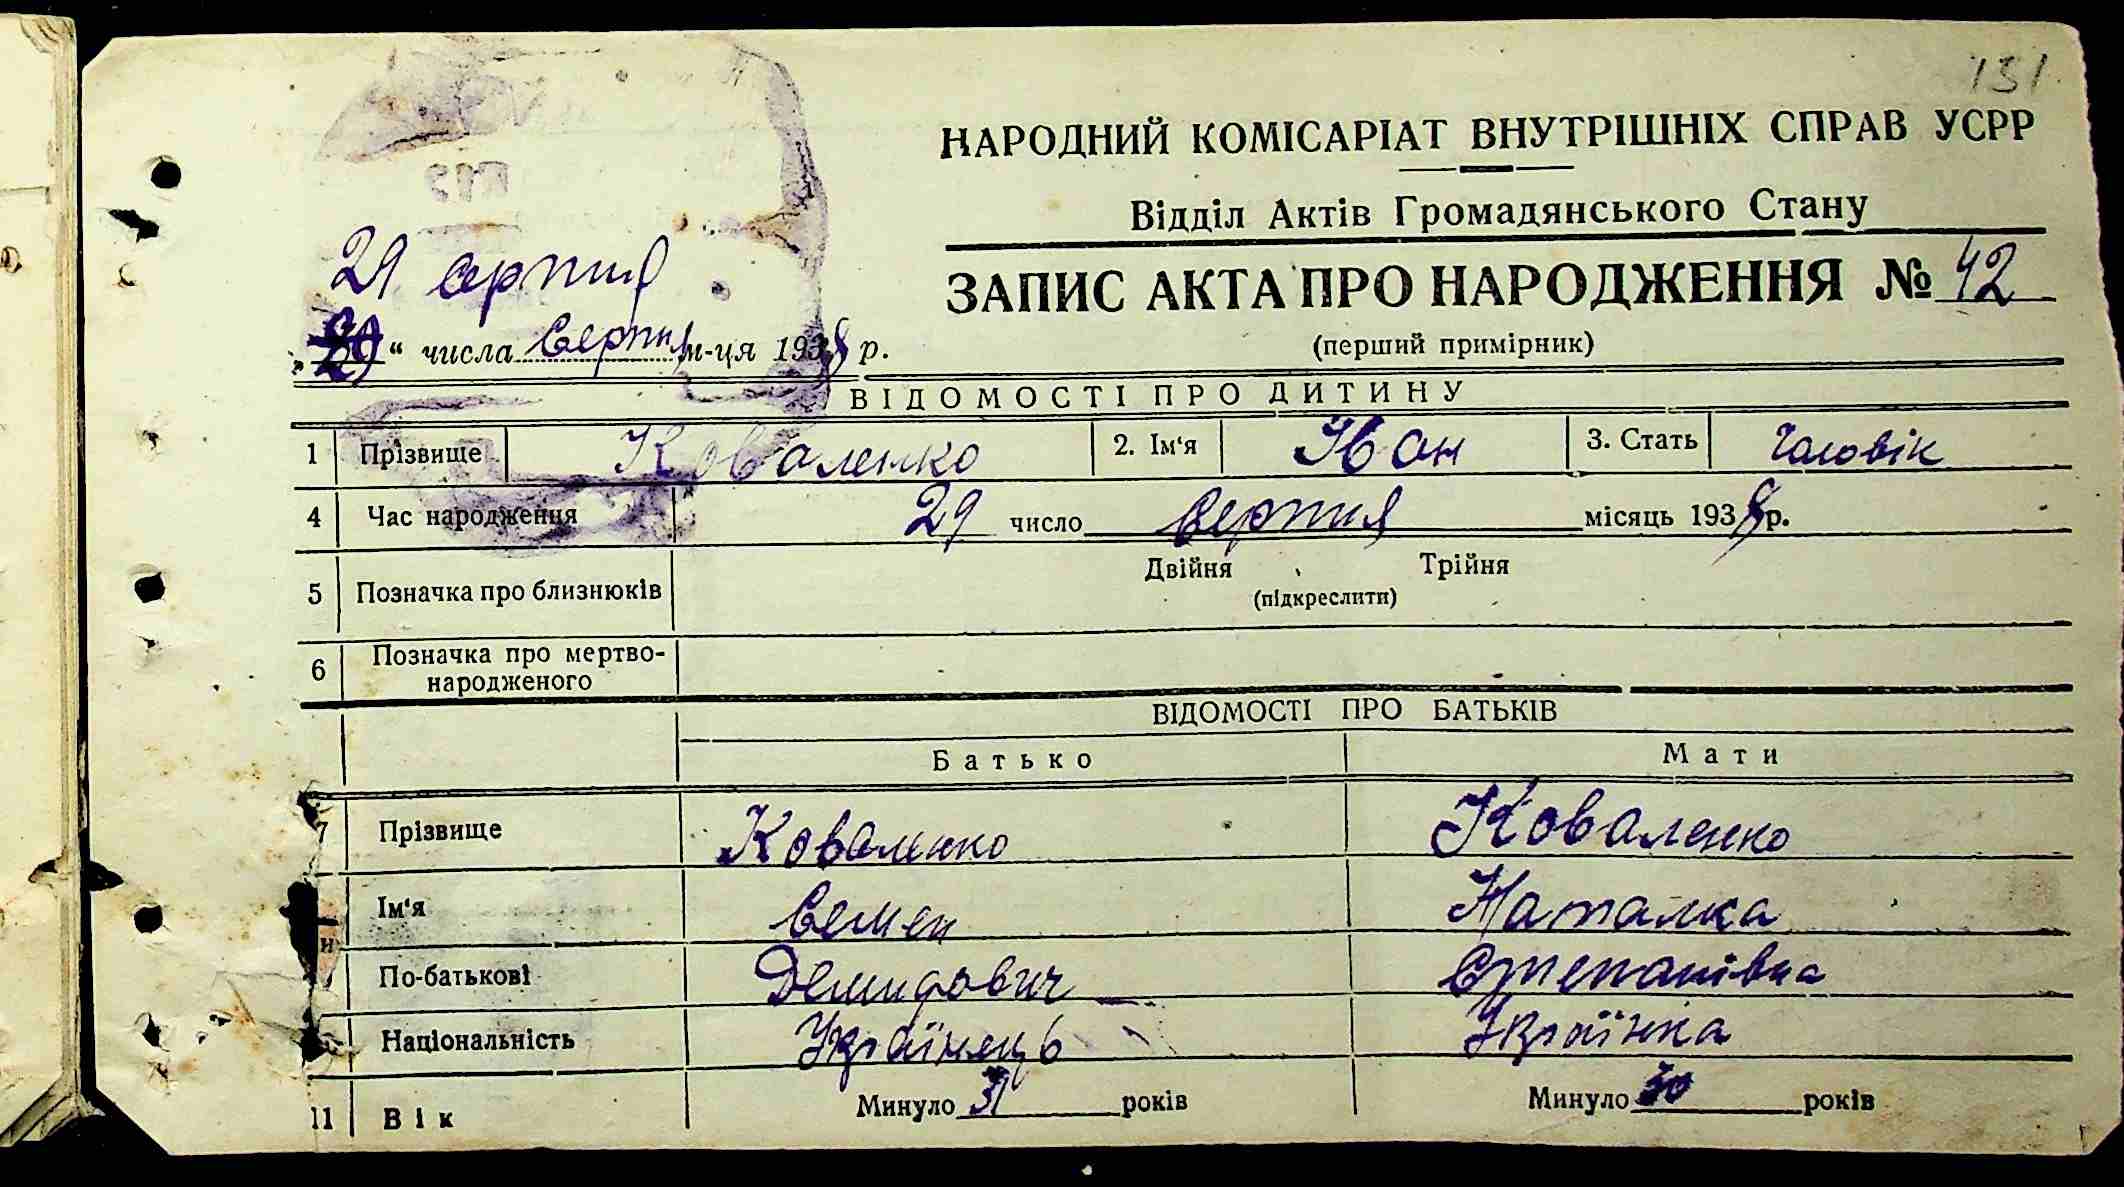 131
НАРОДНИЙ КОМІСАРІАТ ВНУТРІШНІХ СПРАВ УСРР
Відділ Актів Громадянського Стану
ЗАПИС АКТА ПРО НАРОДЖЕННЯ № 42
(перший примірник)
29 серпня
„29“ числа Серпня м-ця 1938 р.
ВІДОМОСТІ ПРО ДИТИНУ
1 Прізвище Коваленко 2. Ім‘я Іван 3. Стать Чоловік
4 Час народження 29 число Серпня місяць 1938 р.
5 Позначка про близнюків Двійня Трійня
(підкреслити)
6 Позначка про мертво-
народженого
ВІДОМОСТІ ПРО БАТЬКІВ
Батько Мати
7 Прізвище Коваленко Коваленко
Ім‘я Семен Наталка
По-батькові Демидович Степанівна
Національність Українець Українка
11 Вік Минуло 31 років Минуло 30 років